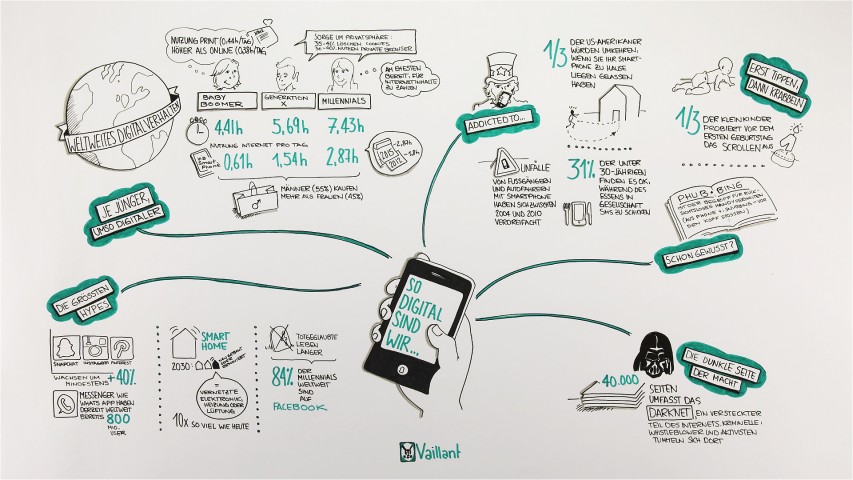 WELTWEITES DIGITALVERHALTEN
NUTZUNG PRINT (0,44h/TAG)
HÖHER ALS ONLINE (0,38h/TAG)
SORGE UM PRIVATSPHÄRE:
COOKIES
NUTZEN PRIVATE BROWSER
AM EHESTEN
BEREIT, FÜR
INTERNETINHALTE
ZU ZAHLEN
BABY
BOOMER
GENERATION
X
MILLENNIALS
4,41h
5,69h
7,43h
NUTZUNG INTERNET PRO TAG
0,61h
1,54h
2,87h
2015
2012
MÄNNER (55%) KAUFEN
MEHR ALS FRAUEN (45%)
JE JUNGER,
UMSO DIGITALER
ADDICTED TO...
1/3
DER US-AMERIKANER
WÜRDEN UMKEHREN,
WENN SIE IHR SMART-
PHONE ZU HAUSE
LIEGEN GELASSEN
HABEN
UNFÄLLE
VON FUSSGÄNGERN
UND AUTOFAHRERN
MIT SMARTPHONE
HABEN SICH ZWISCHEN
2004 UND 2010
VERDREIFACHT
31%
DER UNTER
30-JÄHRIGEN
FINDEN ES OK,
WÄHREND DES
ESSENS IN
GESELLSCHAFT
SMS ZU SCHICKEN
ERST TIPPEN,
DANN KRABBELN
1/3
DER KLEINKINDER
PROBIERT VOR DEM
ERSTEN GEBURTSTAG
DAS SCROLLEN AUS
PHUB•BING
IST DER BEGRIFF FÜR RÜCK-
SCHON GEWUSST?
DIE GRÖSSTEN
HYPES
SNAPCHAT
INSTAGRAM
PINTEREST
WACHSEN UM
MINDESTENS +40%
MESSENGER WIE
WHATSAPP HABEN
DERZEIT WELTWEIT
BEREITS 800
MIO.
USER
SMART
HOME
2030:
=
VERNETZTE
ELEKTRONIK,
HEIZUNG ODER
LÜFTUNG
10x SO VIEL WIE HEUTE
TOTGEGLAUBTE
LEBEN
LÄNGER
84%
DER
MILLENNIALS
WELTWEIT
SIND
AUF
FACEBOOK
SO
DIGITAL
SIND
WIR...
DIE DUNKLE SEITE
DER MACHT
40.000
SEITEN
UMFASST DAS
DARKNET, EIN VERSTECKTER
TEIL DES INTERNETS, KRIMINELLE,
WHISTLEBLOWER UND AKTIVISTEN
TUMMELN SICH DORT
Vaillant